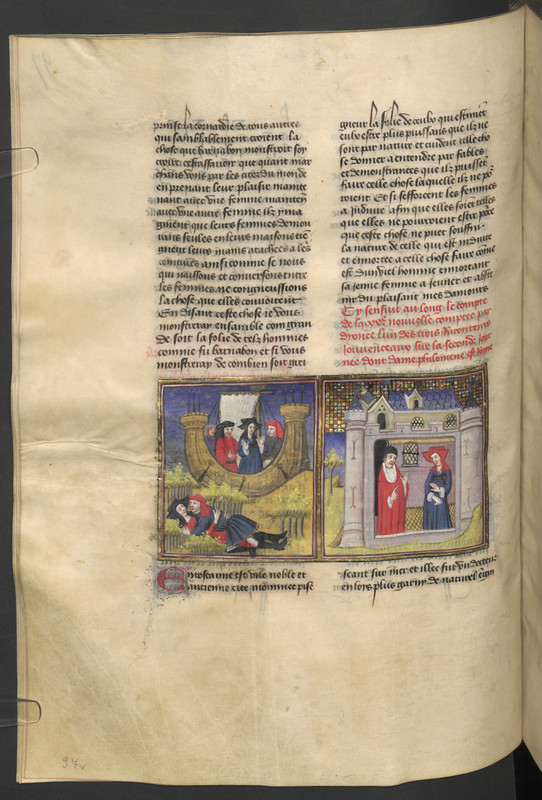 prinst la cornardie de tous autres
qui samblablement croient la
chose que barnabon monstroit soy
croire cestassavoir que quant mar
chans vont par les citez du monde
en prenant leur plaisir mainte
nant avec vne femme maintenant
avec vne autre femme ilz yma
ginent que leurs femmes demou
rans seules en leurs maisons tie
gnent leurs mains atachees a les
ceintures ainsi comme se nous
qui naissons et conversons entre
les femmes ne congneussions
la chose que elles convoitent
En disant ceste chose ie vous
monstreray ensamble com gran
de soit la folie de telz hommes
comme fu barnabon et si vous
monstreray de combien soit grei
gneur la folie de ceulx qui estiment
eulx estre plus puissans que ilz ne
sont par nature et cuident telle cho
se donner a entendre par fables
et demonstrances que ilz puissent
faire celle chose laquelle ilz ne po
roient Et si sefforcent les femmes
a induire afin que elles soient celles
que elles ne pourroient estre pour
que ceste chose ne puet souffrir
la nature de celle qui est induite
et enhortee a celle chose faire come
est dun vieil homme enhortant
sa jenne femme a jeuner et abste
nir du plaisant mes damours
Cy sensuit au long le compte
de la xxe nouvelle comptee par
dionee lun des trois racontens
jouvenceaux sur la seconde jour
nee dont dame philomene est
En toscanne est vne noble et
ancienne cite nommee pise
seant sur mer et illec fut vn docteur
en loys plus garny de naturel engin
97v